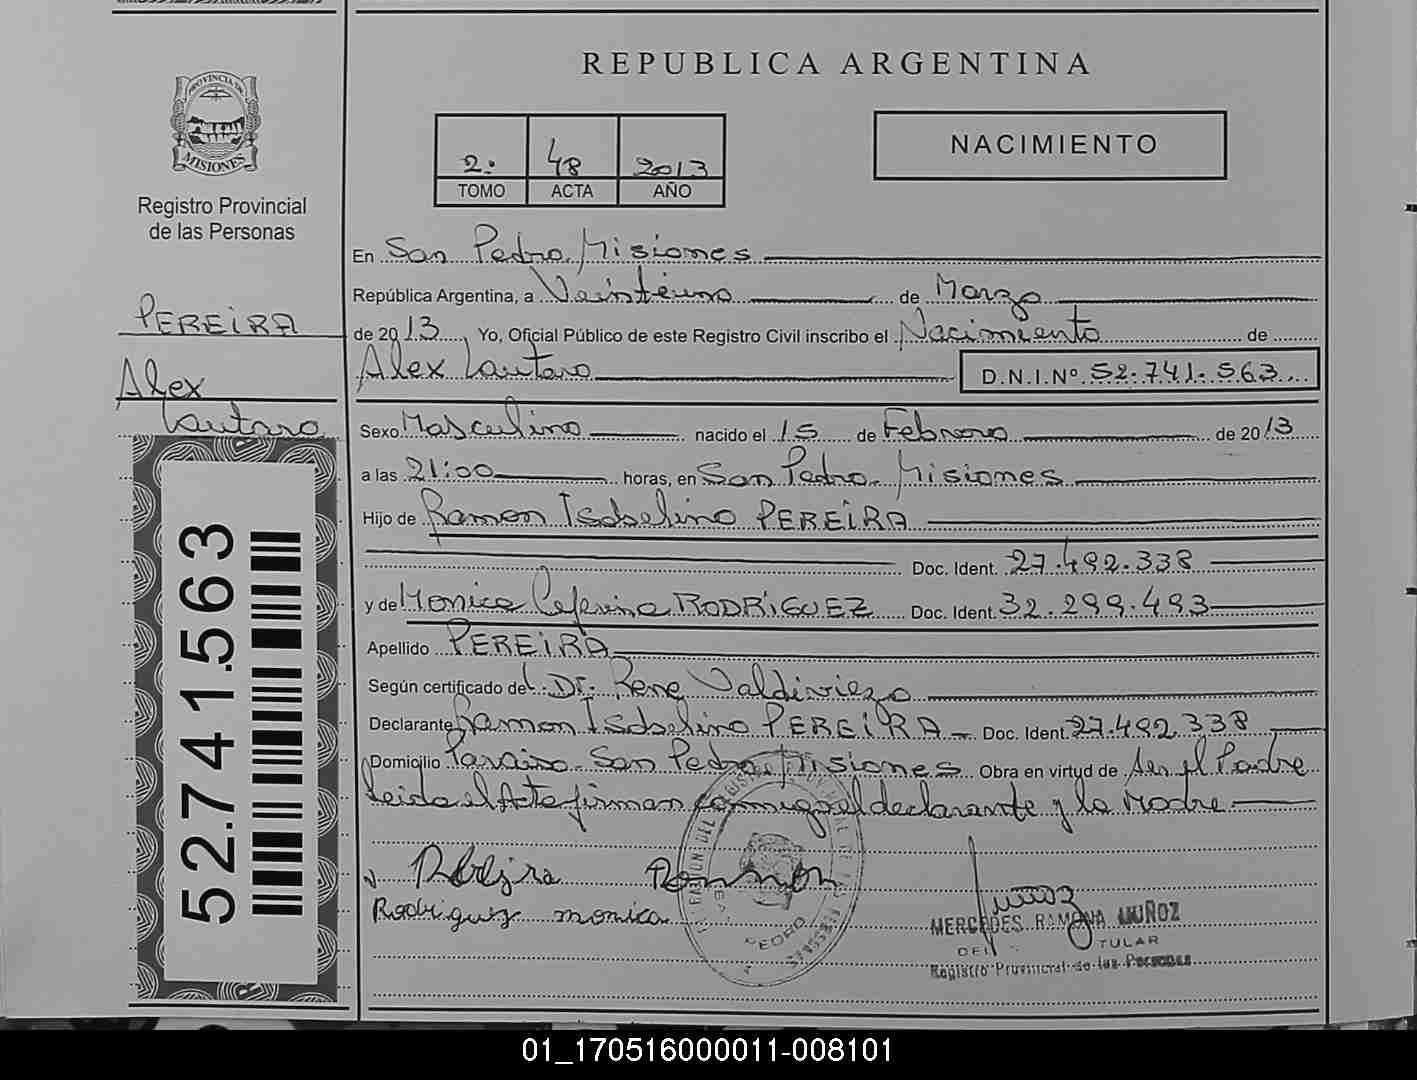 REPUBLICA ARGENTINA
PROVINCIA DE
MISIONES
Registro Provincial
de las Personas
2: 48 2013
TOMO ACTA AÑO
NACIMIENTO
En San Pedro. Misiones
República Argentina, a Veintiuno de Marzo
PEREiRA
de 2013. Yo, Oficial Público de este Registro Civil inscribo el Nacimiento de
Alex
Lautaro
Alex Lautaro D.N.I.Nº 52.741.563
Sexo Masculino nacido el 15 de Febrero de 2013
a las 21:00 horas, en San Pedro. Misiones
Hijo de Ramon Isabelino PEREiRA
Doc. Ident. 27.492.338
y de Monica Ceferina RODRiGUEZ Doc. Ident. 32.299.493
Apellido PEREiRA
Según certificado del. Dr. Rene Valdiviezo
Declarante Ramon Isabelino PEREiRA Doc. Ident. 27.492.338
Domicilio Paraiso. San Pedro. Misiones Obra en virtud de ser el Padre
leida el Acta firman conmigo el declarante y la Madre
52.741.563
Pereira Ramon
Rodriguez monica
MERCEDES RAMONA MUÑOZ
TULAR
Registro Provincial de las Personas
PEDRO
01_170516000011-008101